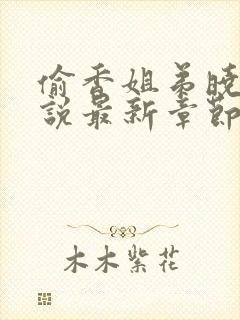 偷香姐弟晓
說最新章節
木木紫花